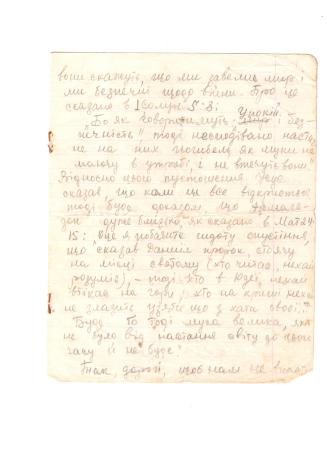 вони скажуть, що ми завели мир і
ми безпечні щодо війни. Про це
сказано в 1 Солун 5:3:
„Бо як говоритимуть: Упокій і без-
печність!" тоді несподівано наста-
не на них погибель як муки на
малочу в утробі, і не втечуть вони".
Відносно цього пустошення Ісус
сказав, що коли це все відкриється
тоді буде доказом, що Армаге-
дон дуже близько, як сказано в Мат 24
15: Ще й побачите гидоту спустіння,
що сказав Даниїл пророк, стоячу
на місці святому (хто читає, нехай
розуміє), – тоді хто в Юдеї, нехай
втікає на гори, хто на криші нехай
не злазить узяти що з хати своєї..."
Буде бо тоді мука велика, яка
не було від настання світу до цього
часу й не буде".
Інак, дорогі, щоб нам не